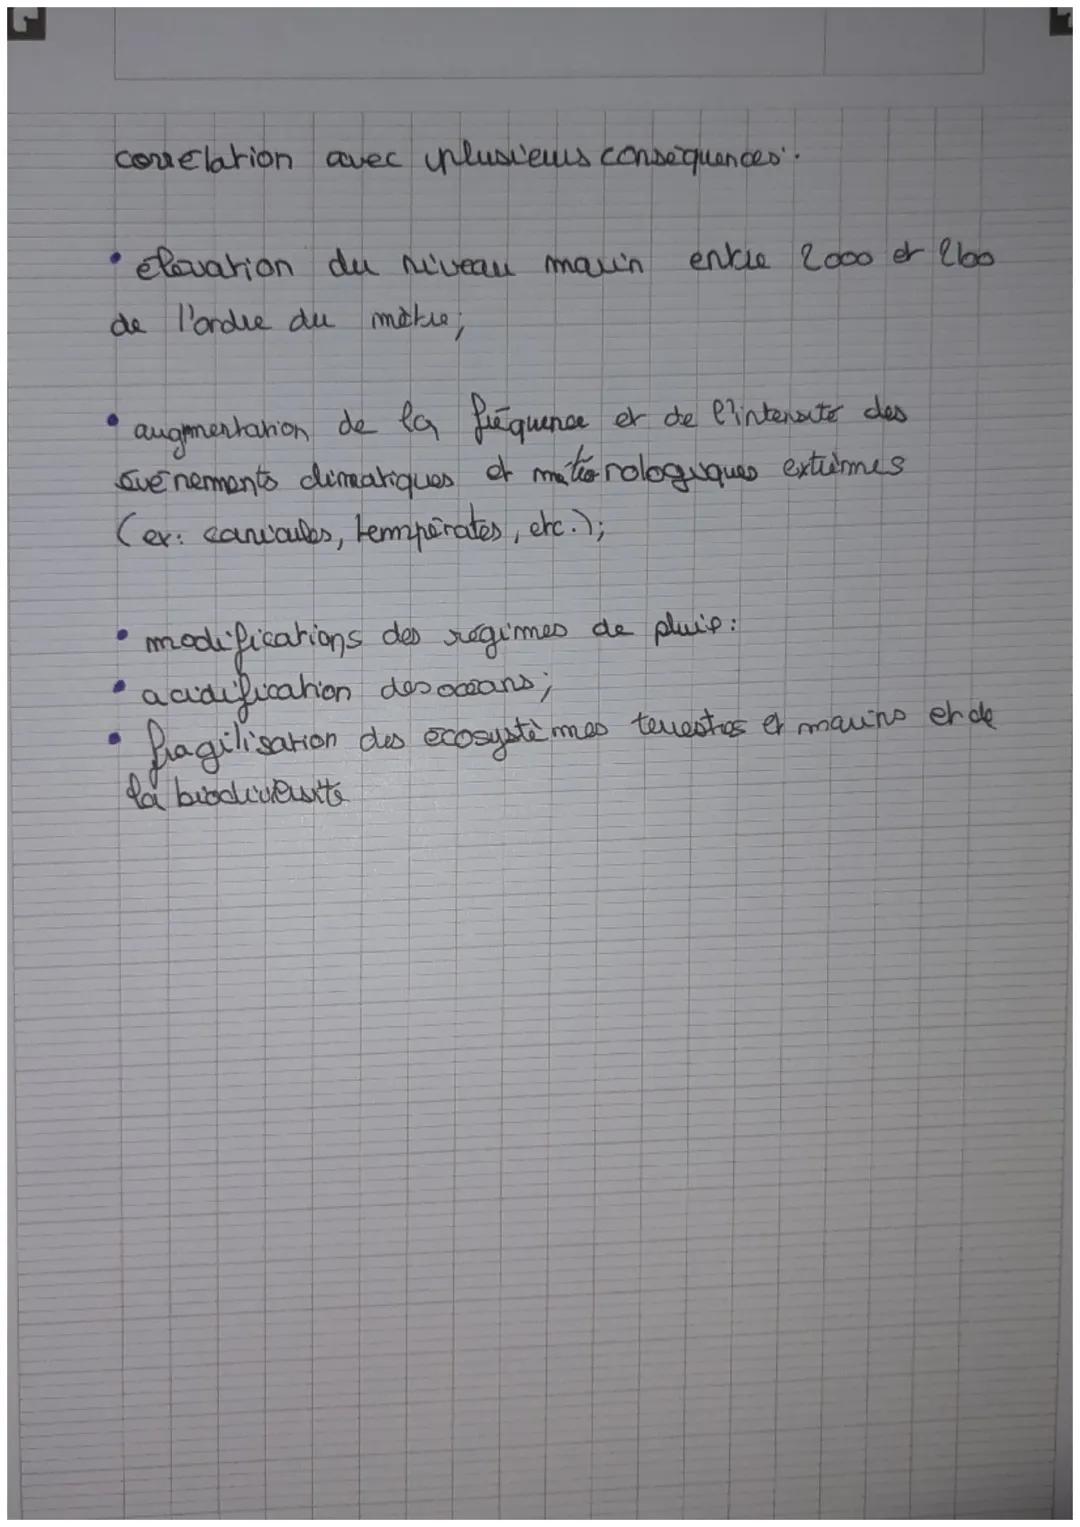 correlation avec plusieurs conséquences.
• élevation du niveau marin entre 2000 et 2100
de l'ordre du mètre;
• augmentation de la fréquence et de l'intensité des
événements climatiques et météorologiques extrêmes
(ex: canicules, températes, etc.);
• modifications des régimes de pluie:
• acidification des océans;
• fragilisation des ecosystèmes terrestres et marins et de
la biodiversité